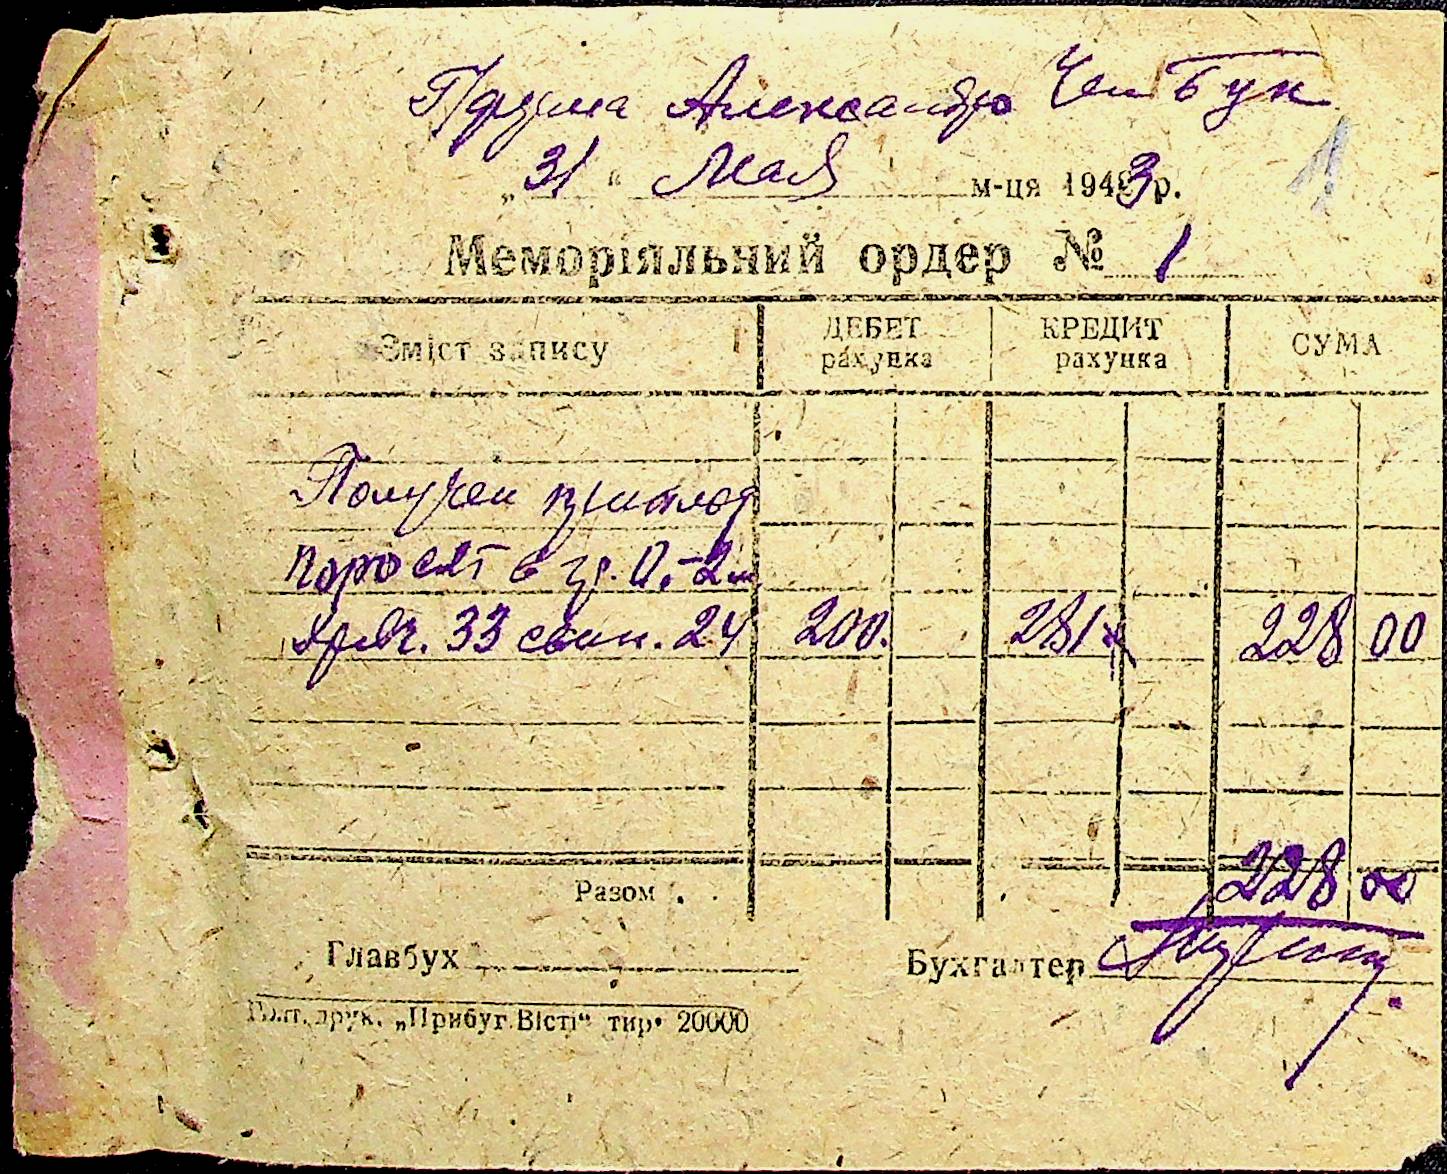 Александро
„31“ Мая м-ця 1943 р.
Меморіяльний ордер № 1
Зміст запису ДЕБЕТ рахунка КРЕДИТ рахунка СУМА
Получен приплод
поросят в гр. 0-2 м
33 свин. 24 200. 281 228 00
Разом . 228 00
Главбух Бухгалтер
друк. „Прибуг.Вісті“ тир. 20000